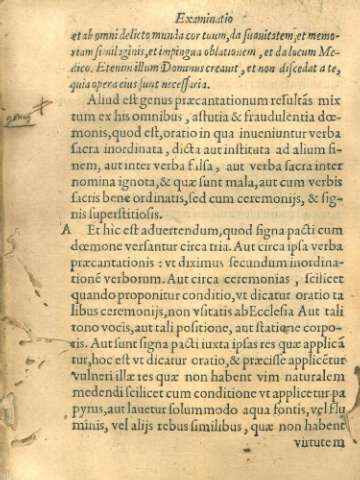 Examinatio
et ab omni delicto munda cor tuum, da suauitatem, et memo-
riam similaginis, et impingua oblationem, et da locum Me-
dico. Etenim illum Dominus creauit, et non discedat a te,
quia opera eius sunt necessaria.
Aliud est genus præcantationum resultãs mix
tum ex his omnibus, astutia & fraudulentia dœ-
monis, quod est, oratio in qua inueniuntur verba
sacra inordinata, dicta aut instituta ad alium fi-
nem, aut inter verba falsa, aut verba sacra inter
nomina ignota, & quæ sunt mala, aut cum verbis
sacris bene ordinatis, sed cum ceremonijs, & sig-
nis superstitiosis.
A Et hic est aduertendum, quod signa pacti cum
dœmone versantur circa tria. Aut circa ipsa verba
præcantationis : vt diximus secundum inordina-
tionẽ verborum. Aut circa ceremonias, scilicet
quando proponitur conditio, vt dicatur oratio ta
libus ceremonijs, non vsitatis ab Ecclesia Aut tali
tono vocis, aut tali positione, aut statione corpo-
ris. Aut sunt signa pacti iuxta ipsas res quæ applicã
tur, hoc est vt dicatur oratio, & præcisse applicẽtur
vulneri illæ res quæ non habent vim naturalem
medendi scilicet cum conditione vt applicetur pa
pyrus, aut lauetur solummodo aqua fontis, vel flu
minis, vel alijs rebus similibus, quæ non habent
virtutem